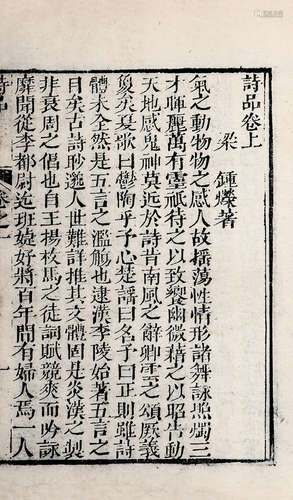 詩品卷上
梁 鍾嶸著
氣之動物物之感人故搖蕩性情形諸舞詠照燭三
才暉麗萬有靈祇待之以致饗幽微藉之以昭告動
天地感鬼神莫近於詩昔南風之辭卿雲之頌厥義
敻矣夏歌曰鬱陶乎予心楚謠曰名予曰正則雖詩
體未全然是五言之濫觴也逮漢李陵始著五言之
目矣古詩眇邈人世難詳推其文體固是炎漢之製
非衰周之倡也自王揚枚馬之徒詞賦競爽而吟詠
靡聞從李都尉迄班婕妤將百年間有婦人焉一人
詩品 卷之一 一